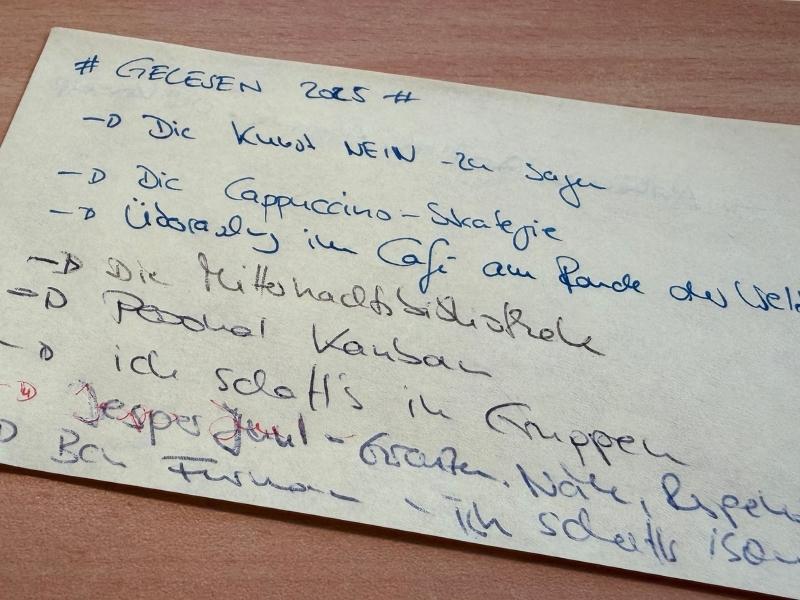 # GELESEN 2025 #
→ Die Kunst NEIN zu sagen
→ Die Cappuccino-Strategie
→ Überraschung im Café am Rande der Welt
→ Die Mitternachtsbibliothek
→ Personal Kanban
→ ich schaff's in Gruppen
→ Jesper Juul - Grenzen, Nähe, Respekt
→ Ben Furman - ich schaffs